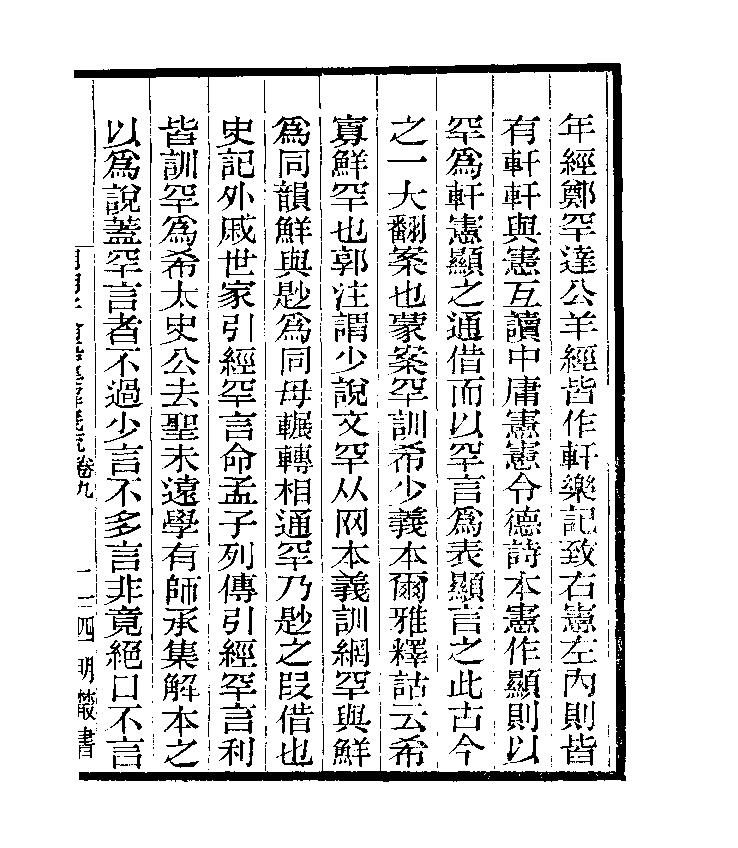 年經鄭罕達公羊經皆作軒樂記致右憲左內則皆
有軒軒與憲互讀中庸憲憲令德詩本憲作顯則以
罕爲軒憲顯之通借而以罕言爲表顯言之此古今
之一大翻案也蒙案罕訓希少義本爾雅釋詁云希
寡鮮罕也郭注謂少說文罕从网本義訓網罕與鮮
爲同韻鮮與尟爲同母輾轉相通罕乃尟之叚借也
史記外戚世家引經罕言命孟子列傳引經罕言利
皆訓罕爲希太史公去聖未遠學有師承集解本之
以爲說蓋罕言者不過少言不多言非竟絕口不言
卷九
四明叢書